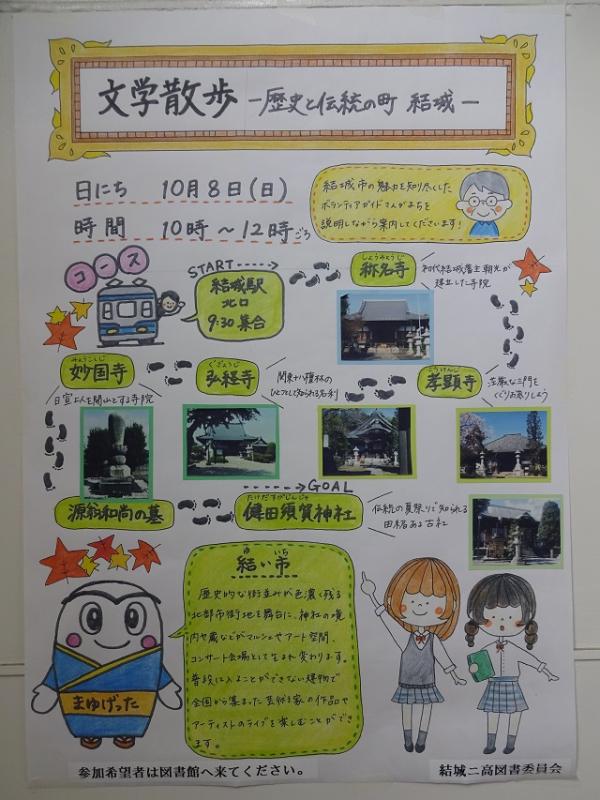 文学散歩 ー歴史と伝統の町 結城ー
日にち 10月8日(日)
時間 10時～12時ごろ
結城市の魅力を知り尽くした
ボランティアガイドさんがまちを
説明しながら案内してくださいます!
コース
START
結城駅
北口
9:30 集合
しょうみょうじ
称名寺
初代結城藩主朝光が
建立した寺院
こうけんじ
孝顕寺
荘厳な三門を
くぐりお参りしよう
ぐぎょうじ
弘経寺
関東十八檀林の
ひとつとして知られる名刹
みょうこくじ
妙国寺
日宣上人を開山とする寺院
源翁和尚の墓
GOAL
たけだすがじんじゃ
健田須賀神社
伝統の夏祭りで知られる
由緒ある古社
ゆ いち
結い市
歴史的な街並みが色濃く残る
北部市街地を舞台に、神社の境
内や蔵などがマルシェやアート空間、
コンサート会場として生まれ変わります。
普段に入ることができない建物で
全国から集まった芸術家の作品や
アーティストのライブを楽しむことができ
ます。
まゆげった
参加希望者は図書館へ来てください。
結城二高図書委員会